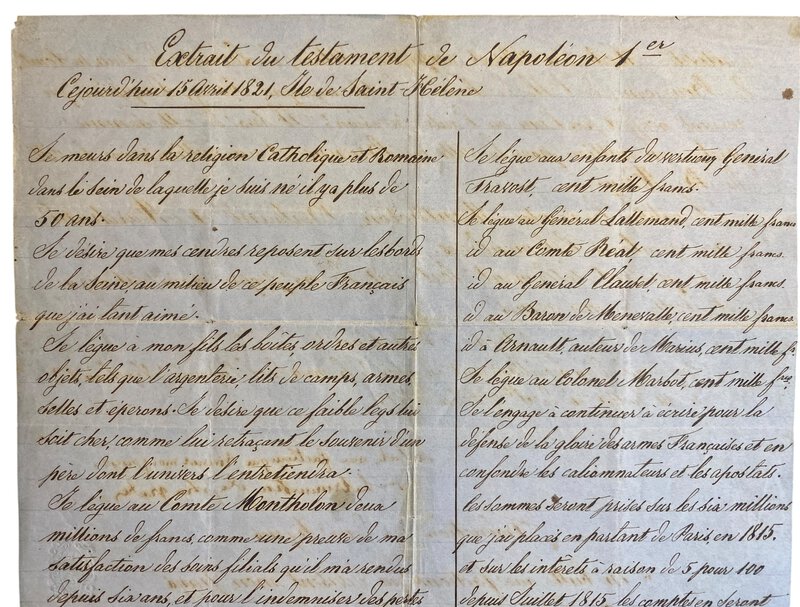 Extrait du testament de Napoléon 1er
Cejourd'hui 15 Avril 1821, Ile de Saint-Hélène
Je meurs dans la religion Catholique et Romaine
dans le sein de laquelle je suis né il y a plus de
50 ans.
Je désire que mes cendres reposent sur les bords
de la Seine, au milieu de ce peuple Français
que j'ai tant aimé.
Je lègue à mon fils les boîtes, ordres et autres
objets, tels que l'argenterie, lits de camps, armes,
selles et éperons. Je desire que ce faible legs lui
soit cher, comme lui retraçant le souvenir d'un
père dont l'univers l'entretiendra.
Je lègue au Comte Montholon deux
millions de francs, comme une preuve de ma
satisfaction des soins filials qu'il m'a rendus
depuis six ans, et pour l'indemniser des pertes
Je lègue aux enfants du vertueux Général
Travost, cent mille francs.
Je lègue au Général Lallemand, cent mille francs
id au Comte Réal, cent mille francs.
id au Général Clauset cent mille francs.
id au Baron de Menevalle, cent mille francs
id à Arnault, auteur de Marius, cent mille f.
Je lègue au Colonel Marbot, cent mille frcs.
Je l'engage à continuer à écrire pour la
défense de la gloire des armes Françaises et en
confondre les caliomnateurs et les apostats.
les sommes seront prises sur les six millions
que j'ai placés en partant de Paris, en 1815.
et sur les intérêts à raison de 5 pour 100
depuis Juillet 1815, les comptes en seront